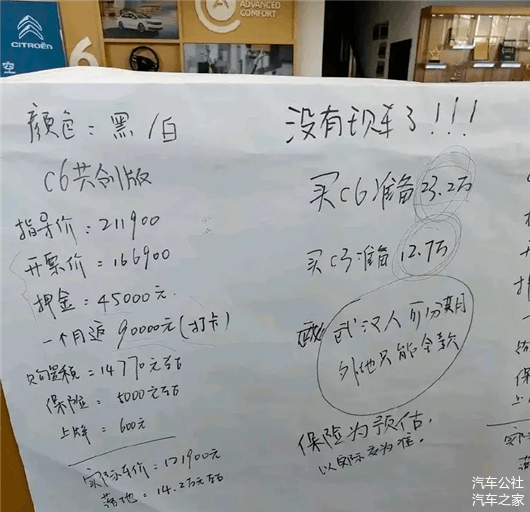 CITROËN
ADVANCED
COMFORT
颜色：黑/白
C6共创版
指导价：211900
开票价：166900
押金：45000元
一个月返90000元(打卡)
购置税：14770元左右
保险：5000元左右
上牌：600元
实际车价：121900元
落地：14.2万元左右
没有现车了！！！
买C6准备23.2万
买C3准备12.7万
武汉人可分期
外地只能全款
保险为预估，
以实际为准。
汽车公社
汽车之家